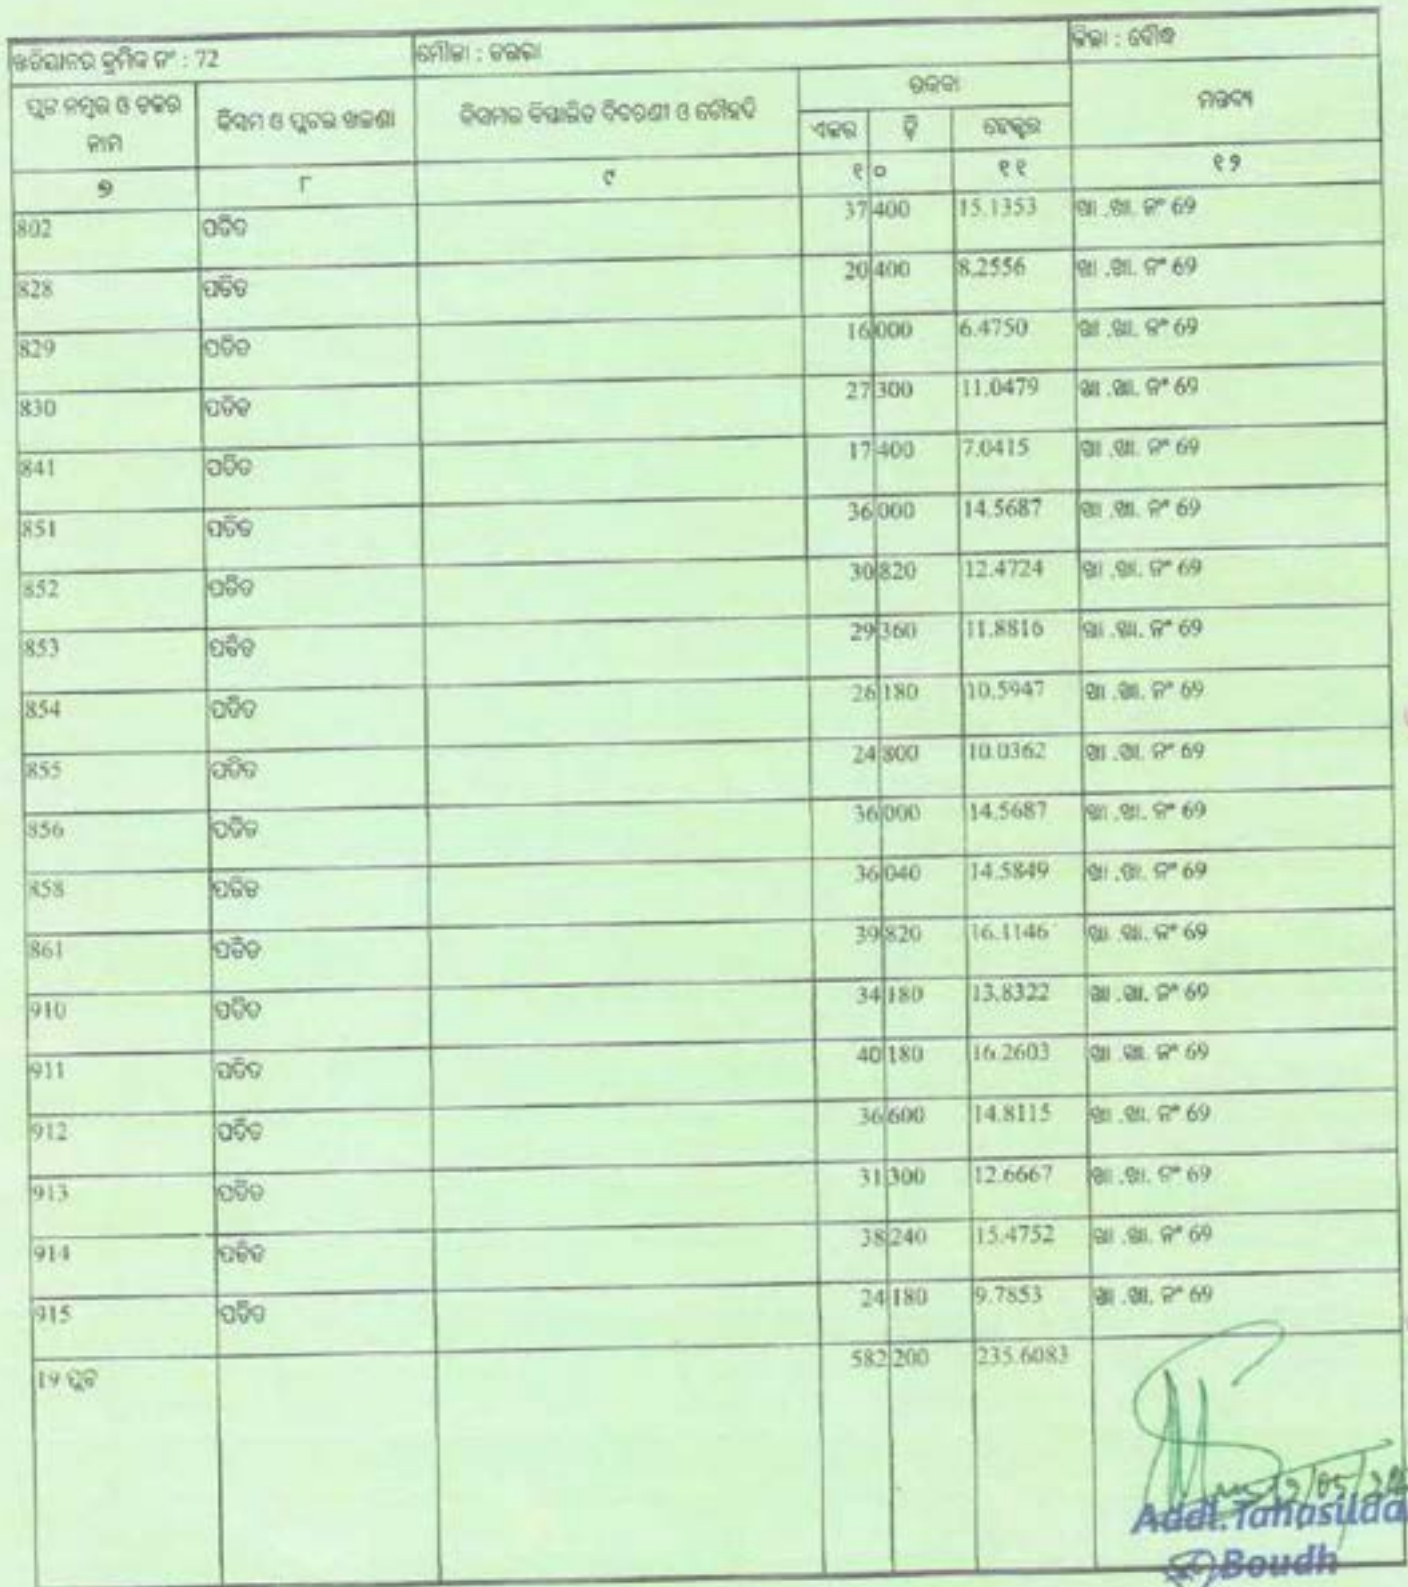 ଖତିୟାନର କ୍ରମିକ ନଂ : 72 ମୌଜା : ଜିଲ୍ଲା : ବୌଦ୍ଧ
ପ୍ଲଟ ନମ୍ବର ଓ ଚକର ନାମ କିସମ ଓ ପ୍ଲଟର ଖଜଣା କିସମର ବିସ୍ତାରିତ ବିବରଣୀ ଓ ଚୌହଦି ରକବା ମନ୍ତବ୍ୟ
ଏକର ଡ଼ି ହେକ୍ଟର
୭ ୮ ୯ ୧୦ ୧୧ ୧୨
802 ପତିତ 37 400 15.1353 ଖା .ଖା. ନଂ 69
828 ପତିତ 20 400 8.2556 ଖା .ଖା. ନଂ 69
829 ପତିତ 16 000 6.4750 ଖା .ଖା. ନଂ 69
830 ପତିତ 27 300 11.0479 ଖା .ଖା. ନଂ 69
841 ପତିତ 17 400 7.0415 ଖା .ଖା. ନଂ 69
851 ପତିତ 36 000 14.5687 ଖା .ଖା. ନଂ 69
852 ପତିତ 30 820 12.4724 ଖା .ଖା. ନଂ 69
853 ପତିତ 29 360 11.8816 ଖା .ଖା. ନଂ 69
854 ପତିତ 26 180 10.5947 ଖା .ଖା. ନଂ 69
855 ପତିତ 24 800 10.0362 ଖା .ଖା. ନଂ 69
856 ପତିତ 36 000 14.5687 ଖା .ଖା. ନଂ 69
858 ପତିତ 36 040 14.5849 ଖା .ଖା. ନଂ 69
861 ପତିତ 39 820 16.1146 ଖା .ଖା. ନଂ 69
910 ପତିତ 34 180 13.8322 ଖା .ଖା. ନଂ 69
911 ପତିତ 40 180 16.2603 ଖା .ଖା. ନଂ 69
912 ପତିତ 36 600 14.8115 ଖା .ଖା. ନଂ 69
913 ପତିତ 31 300 12.6667 ଖା .ଖା. ନଂ 69
914 ପତିତ 38 240 15.4752 ଖା .ଖା. ନଂ 69
915 ପତିତ 24 180 9.7853 ଖା .ଖା. ନଂ 69
19 ପ୍ଲଟ 582 200 235.6083
Addl. Tahasilda
Boudh